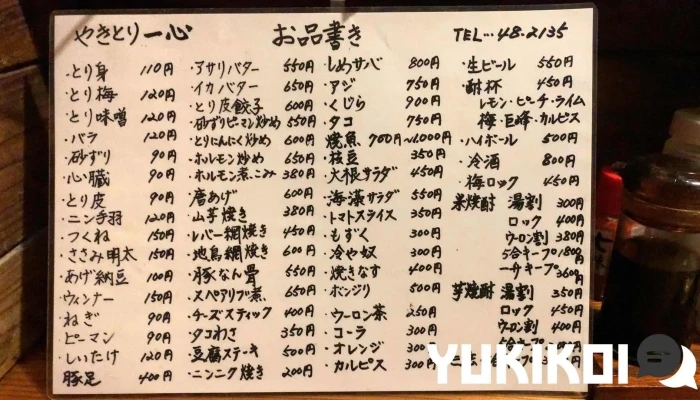 やきとり一心 お品書き TEL…48-2135
・とり身 110円
・とり梅 120円
・とり味噌 120円
・バラ 120円
・砂ずり 90円
・心臓 90円
・とり皮 90円
・ニン手羽 120円
・つくね 150円
・ささみ明太 150円
・あげ納豆 100円
・ウィンナー 150円
・ねぎ 90円
・ピーマン 90円
・しいたけ 120円
豚足 400円
・アサリバター 550円
・イカバター 650円
・とり皮餃子 600円
・砂ずりピーマン炒め 550円
・とりにんにく炒め 600円
・ホルモン炒め 650円
・ホルモン煮こみ 380円
・唐あげ 600円
・山芋焼き 380円
・レバー網焼き 450円
・地鳥網焼き 600円
・豚なん骨 550円
・スペアリブ煮 650円
・チーズスティック 400円
・タコわさ 350円
・豆腐ステーキ 500円
・ニンニク焼き 200円
・しめサバ 800円
・アジ 750円
・くじら 900円
・タコ 750円
・焼魚 700円〜1,000円
・枝豆 350円
・大根サラダ 450円
・海藻サラダ 550円
・トマトスライス 350円
・もずく 300円
・冷や奴 300円
・焼きなす 400円
・ボンジリ 500円
・ウーロン茶 250円
・コーラ 300円
・オレンジ 300円
・カルピス 300円
・生ビール 550円
・酎杯 450円
レモン・ピーチ・ライム
梅・巨峰・カルピス
・ハイボール 500円
・冷酒 800円
・梅ロック 450円
米焼酎 湯割 300円
ロック 400円
ウーロン割 380円
5合キープ 1,800円
一升キープ 3,600円
芋焼酎 湯割 350円
ロック 450円
ウーロン割 400円
5合キープ
YUKIKOI